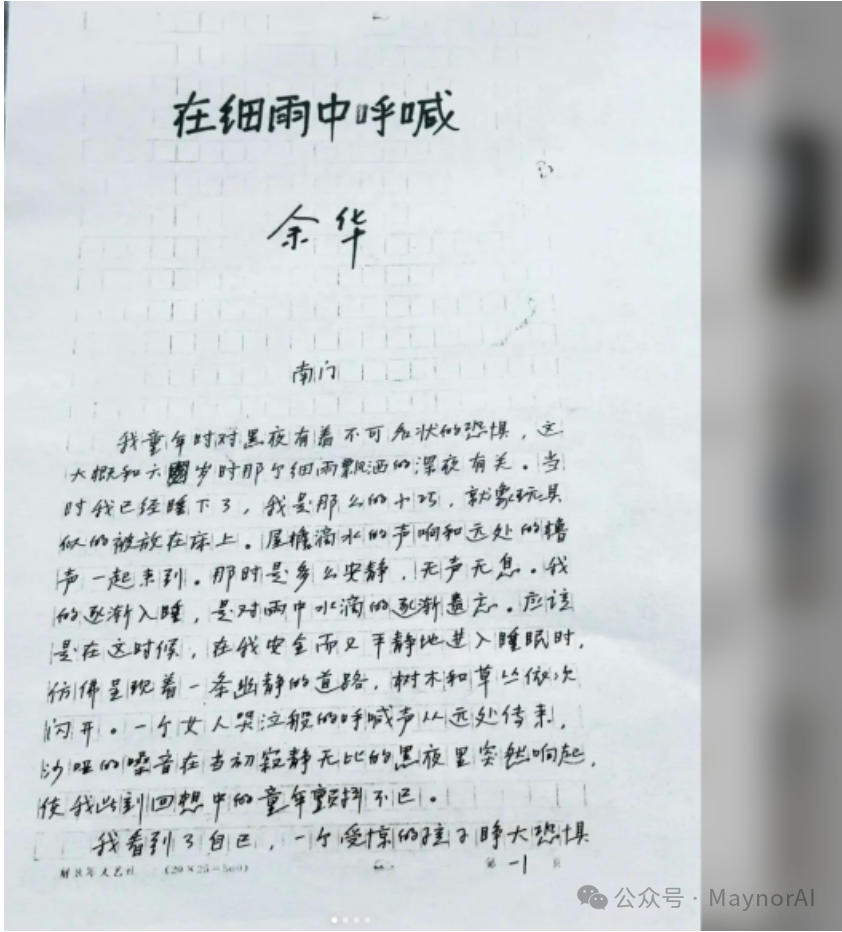 在细雨中呼喊
余华
南门
我童年时对黑夜有着不可名状的恐惧，这
大概和六岁时那个细雨飘洒的深夜有关。当
时我已经睡下了，我是那么的小巧，就象玩具
似的被放在床上。屋檐滴水的声响和远处的橹
声一起来到。那时是多么安静，无声无息。我
的逐渐入睡，是对雨中水滴的逐渐遗忘。应该
是在这时候，在我安全而又平静地进入睡眠时，
仿佛呈现着一条幽静的道路，树木和草丛依次
闪开。一个女人哭泣般的呼喊声从远处传来，
沙哑的嗓音在当初寂静无比的黑夜里突然响起，
使我此刻回想中的童年颤抖不已。
我看到了自己，一个受惊的孩子睁大恐惧
解放军文艺社 (20×25=500) 第 1 页
公众号 · MaynorAI